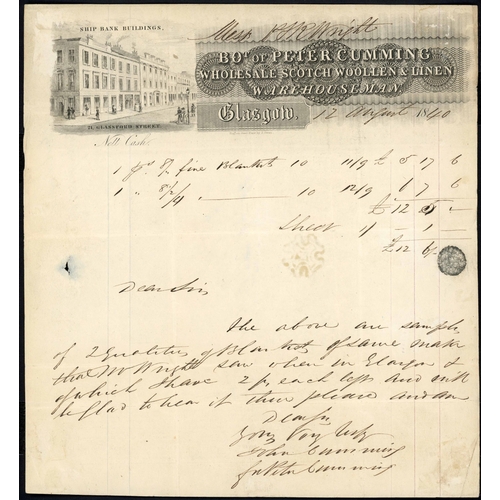 SHIP BANK BUILDINGS,
71, GLASSFORD STREET.
Nett Cash.
Messrs Wright
BOT. OF PETER CUMMING
WHOLESALE SCOTCH WOOLLEN & LINEN
WAREHOUSEMAN.
Glasgow, 12 August 1840
1 pr 8/4 fine Blankets 10 11/9 £ 5 17 6
1 " 10 12/9 6 7 6
£ 12 5 —
Sheet 1/ — 1 —
£12 6/-
Dear Sirs
The above are samples
of 2 Qualities of Blankets of same make
that Mr Wright saw when in Glasgow &
of which I have 2 prs each left and will
be glad to hear if these please and am
Dear Sir
Yours Very Truly
John Cumming
for Peter Cumming